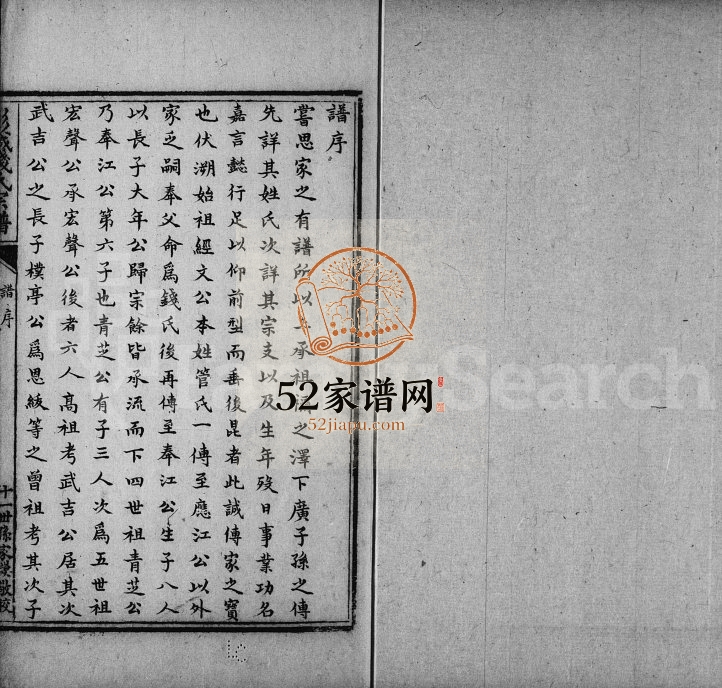 譜序
嘗思家之有譜所以承祖之澤下廣子孫之傳
先詳其姓氏次詳其宗支以及生年歿日事業功名
嘉言懿行足以仰前型而垂後昆者此誠傳家之寶
也伏溯始祖經文公本姓管氏一傳至應江公以外
家乏嗣奉父命爲錢氏後再傳至奉江公生子八人
以長子大年公歸宗餘皆承流而下四世祖青芝公
乃奉江公第六子也青芝公有子三人次爲五世祖
宏聲公承宏聲公後者六人高祖考武吉公居其次
武吉公之長子樸亭公爲思紱等之曾祖考其次子
氏宗譜
譜序
十一世孫家敬校
52家谱网
52jiapu.com
Search